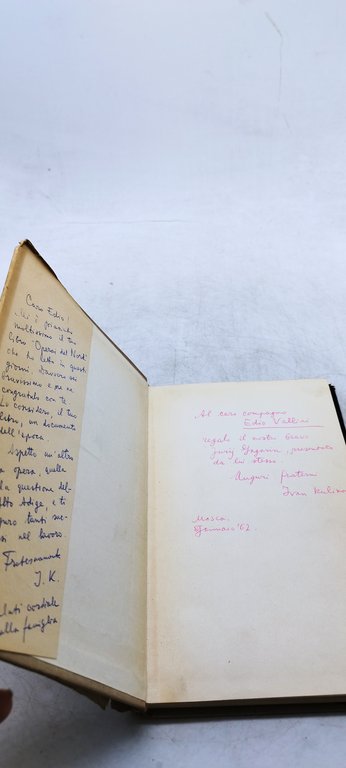 Caro Edio!
Mi è piaciuto
moltissimo il tuo
libro "Operai del Nord"
che ho letto in questi
giorni. Davvero sei
bravissimo e me ne
congratulo con te
Lo considero, il tuo
libro, un documento
dell'epoca.
Aspetto un'altra
opera, quella
la questione del-
Alto Adige, e ti
auguro tanti suc-
si nel lavoro.
Fraternamente
I. K.
Saluti cordiali
alla famiglia
Al caro compagno
Edio Vallini
regalo il nostro bravo
Jury Gagarin, presentato
da lui stesso.
Auguri fraterni
Ivan
Mosca,
Gennaio '62.